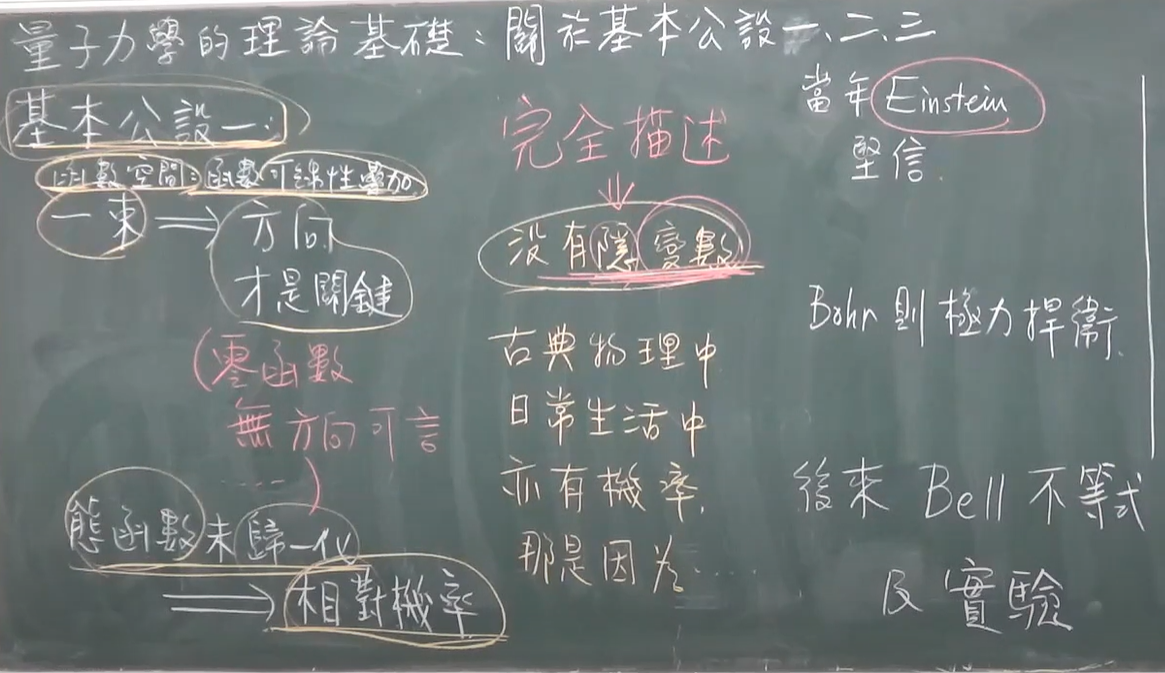 量子力學的理論基礎：關於基本公設一、二、三
基本公設一：
函數空間：函數可線性疊加
一束 ⟹ 方向
才是關鍵
（零函數
無方向可言
……）
態函數未歸一化
⟹ 相對機率
完全描述
⇓
沒有隱變數
古典物理中
日常生活中
亦有機率，
那是因為……
當年 Einstein
堅信.
Bohr 則極力捍衛.
後來 Bell 不等式
及實驗